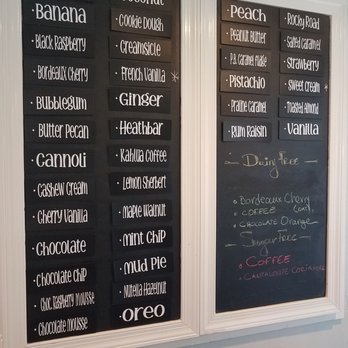 · Banana
· Black Raspberry
· Bordeaux Cherry
· Bubblegum
· Butter Pecan
· Cannoli
· Cashew Cream
· Cherry Vanilla
· Chocolate
· Chocolate Chip
· Choc Raspberry Mousse
· Chocolate Mousse
· Coconut
· Cookie Dough
· Creamsicle
· French Vanilla
· Ginger
· Heathbar
· Kahlua Coffee
· Lemon Sherbert
· Maple Walnut
· Mint Chip
· Mud Pie
· Nutella Hazelnut
· Oreo
· Peach
· Peanut Butter
· P.B. Caramel Fudge
· Pistachio
· Praline Caramel
· Rum Raisin
· Rocky Road
· Salted Caramel
· Strawberry
· Sweet Cream
· Toasted Almond
· Vanilla
- Dairy Free -
Bordeaux Cherry
COFFEE
CHOCOLATE Orange
- Sugar Free -
COFFEE
CANTALOUPE